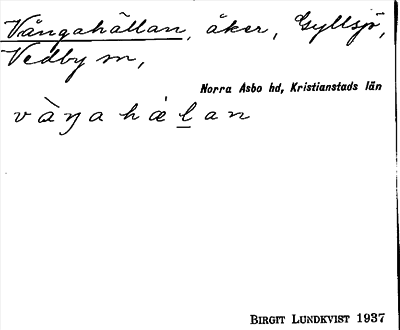 Vångahällan, åker, Gyllsjö,
Vedby sn,
Norra Asbo hd, Kristianstads län
vàŋahæ̀l̲an
BIRGIT LUNDKVIST 1937